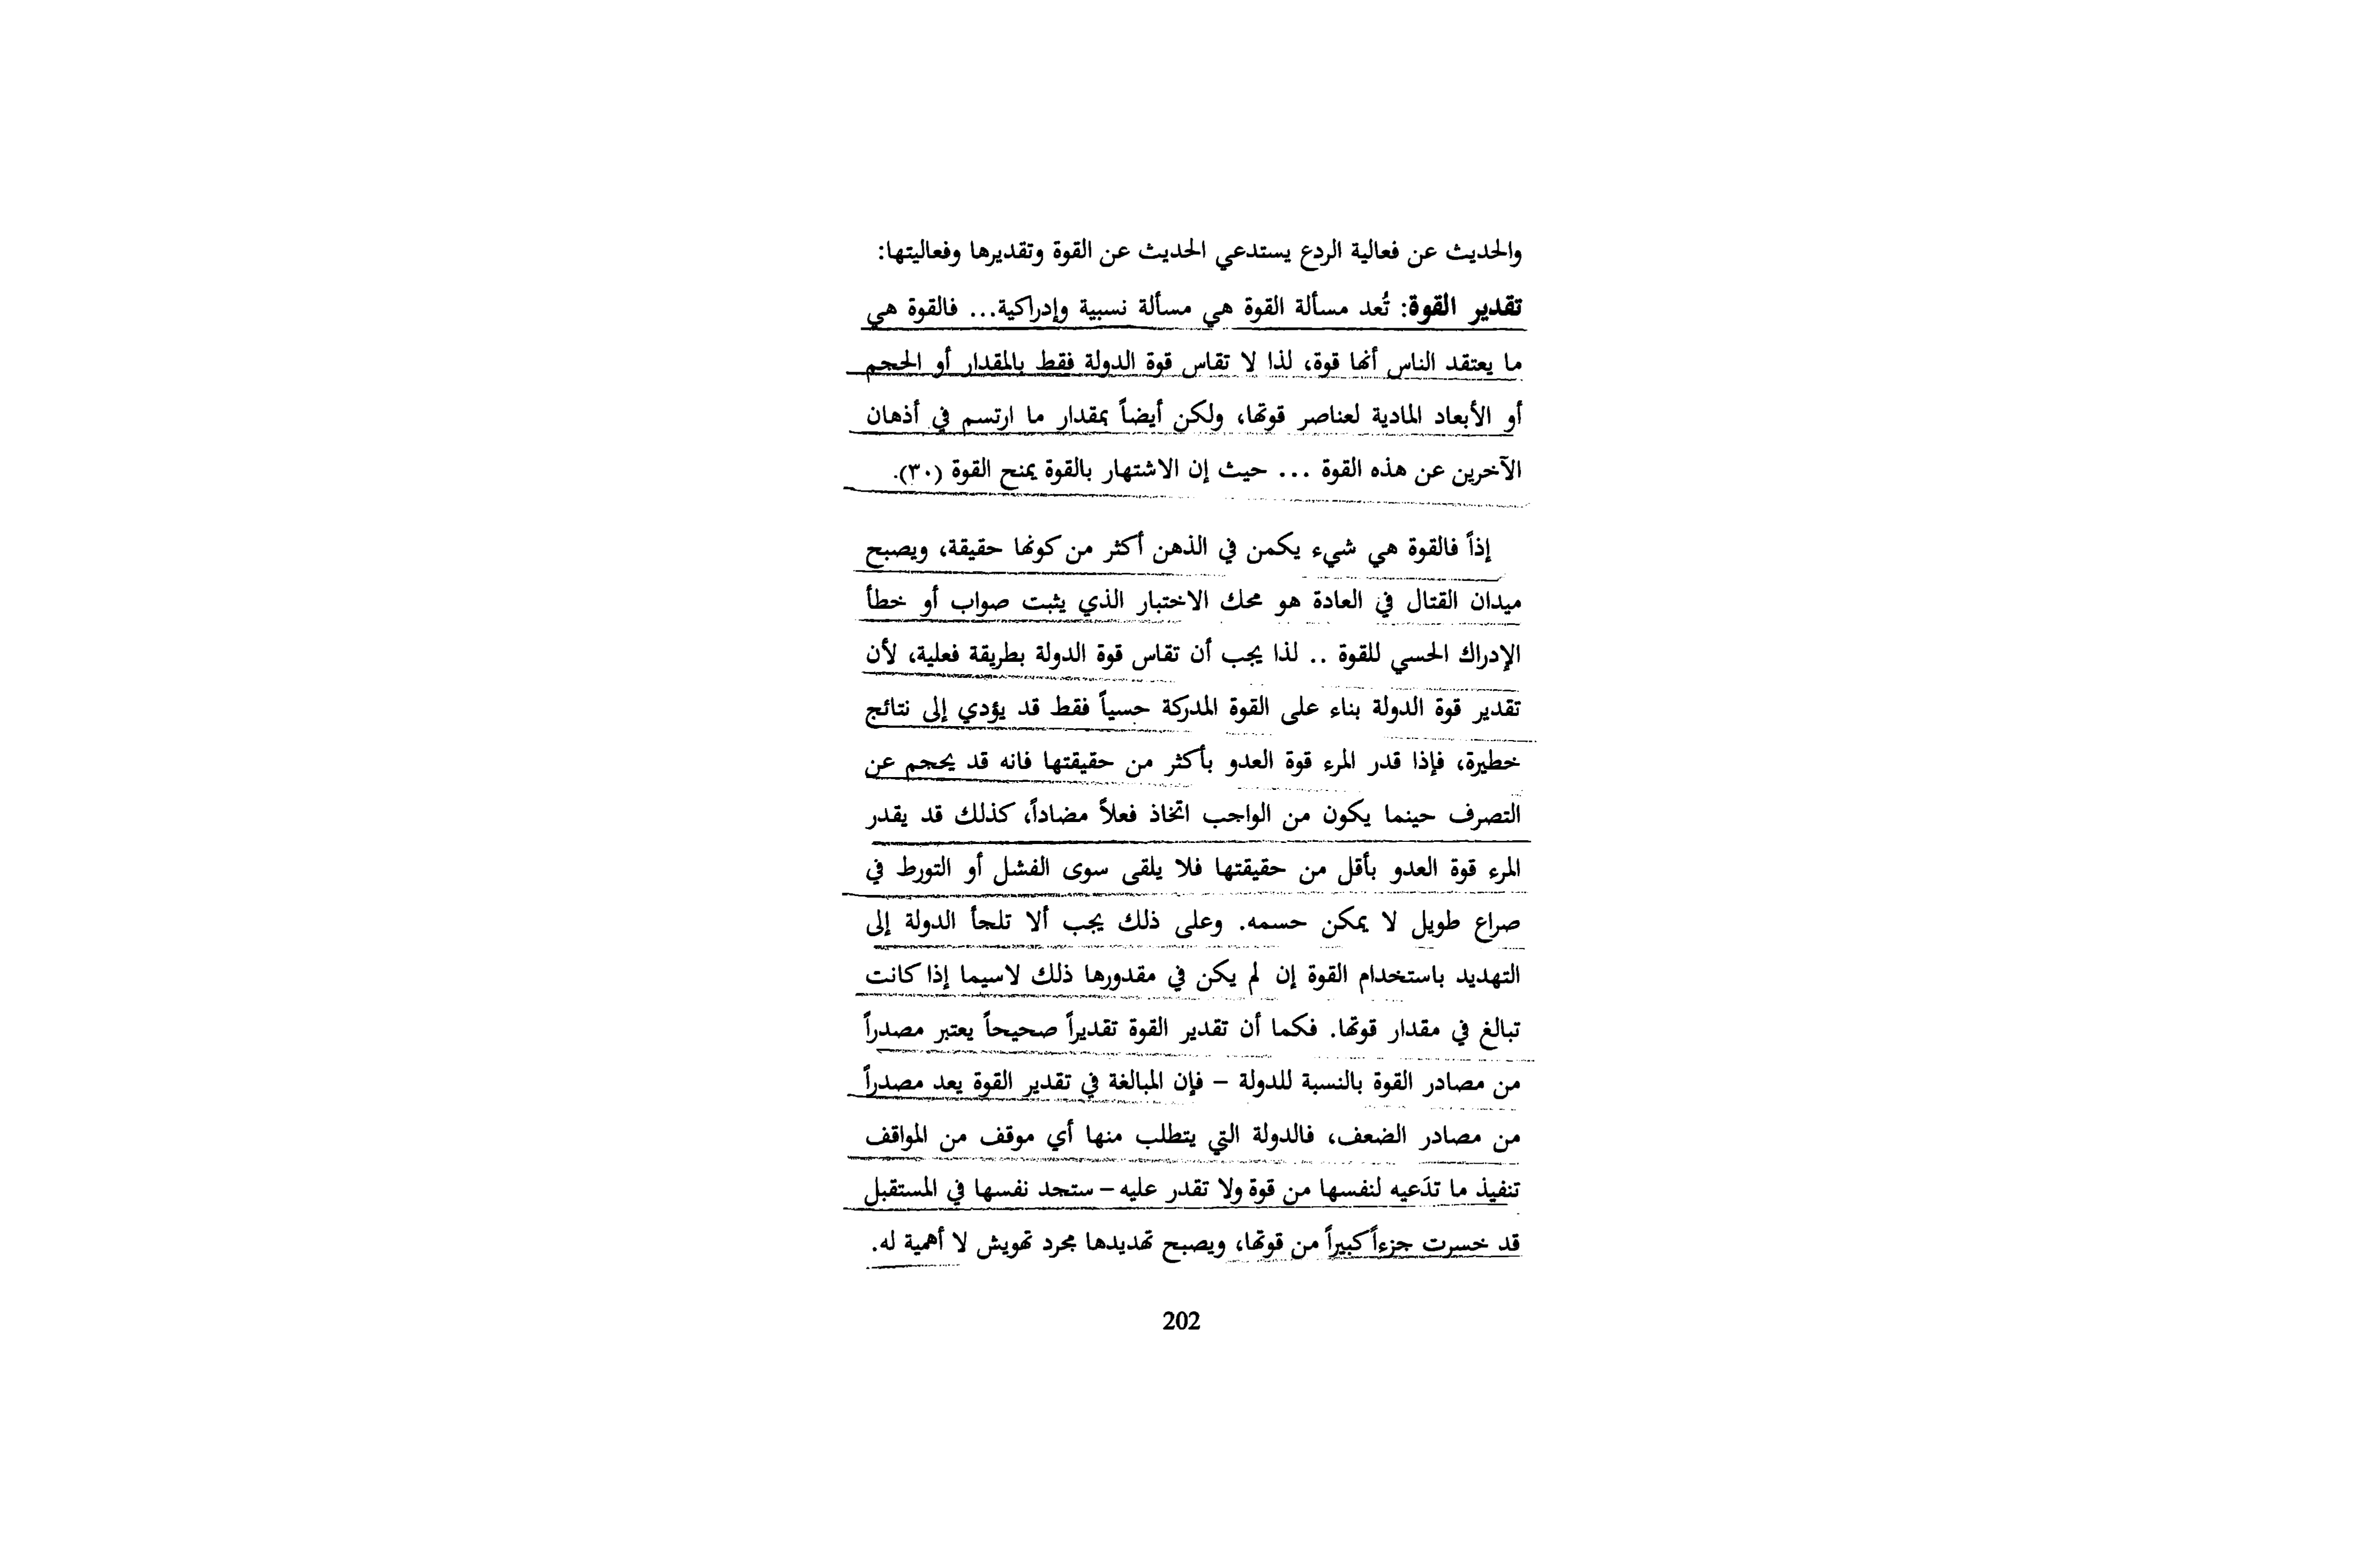 والحديث عن فعالية الردع يستدعي الحديث عن القوة وتقديرها وفعاليتها:
تقدير القوة: تُعد مسألة القوة هي مسألة نسبية وإدراكية... فالقوة هي
ما يعتقد الناس أنها قوة، لذا لا تقاس قوة الدولة فقط بالمقدار أو الحجم
أو الأبعاد المادية لعناصر قوتها، ولكن أيضاً بمقدار ما ارتسم في أذهان
الآخرين عن هذه القوة ... حيث إن الاشتهار بالقوة يمنح القوة (٣٠).
إذاً فالقوة هي شيء يكمن في الذهن أكثر من كونها حقيقة، ويصبح
ميدان القتال في العادة هو محك الاختبار الذي يثبت صواب أو خطأ
الإدراك الحسي للقوة .. لذا يجب أن تقاس قوة الدولة بطريقة فعلية، لأن
تقدير قوة الدولة بناء على القوة المدركة حسياً فقط قد يؤدي إلى نتائج
خطيرة، فإذا قدر المرء قوة العدو بأكثر من حقيقتها فانه قد يحجم عن
التصرف حينما يكون من الواجب اتخاذ فعلاً مضاداً، كذلك قد يقدر
المرء قوة العدو بأقل من حقيقتها فلا يلقى سوى الفشل أو التورط في
صراع طويل لا يمكن حسمه. وعلى ذلك يجب ألا تلجأ الدولة إلى
التهديد باستخدام القوة إن لم يكن في مقدورها ذلك لاسيما إذا كانت
تبالغ في مقدار قوتها. فكما أن تقدير القوة تقديراً صحيحاً يعتبر مصدراً
من مصادر القوة بالنسبة للدولة – فإن المبالغة في تقدير القوة يعد مصدراً
من مصادر الضعف، فالدولة التي يتطلب منها أي موقف من المواقف
تنفيذ ما تدَعيه لنفسها من قوة ولا تقدر عليه – ستجد نفسها في المستقبل
قد خسرت جزءاً كبيراً من قوتها، ويصبح تهديدها مجرد تهويش لا أهمية له.
202